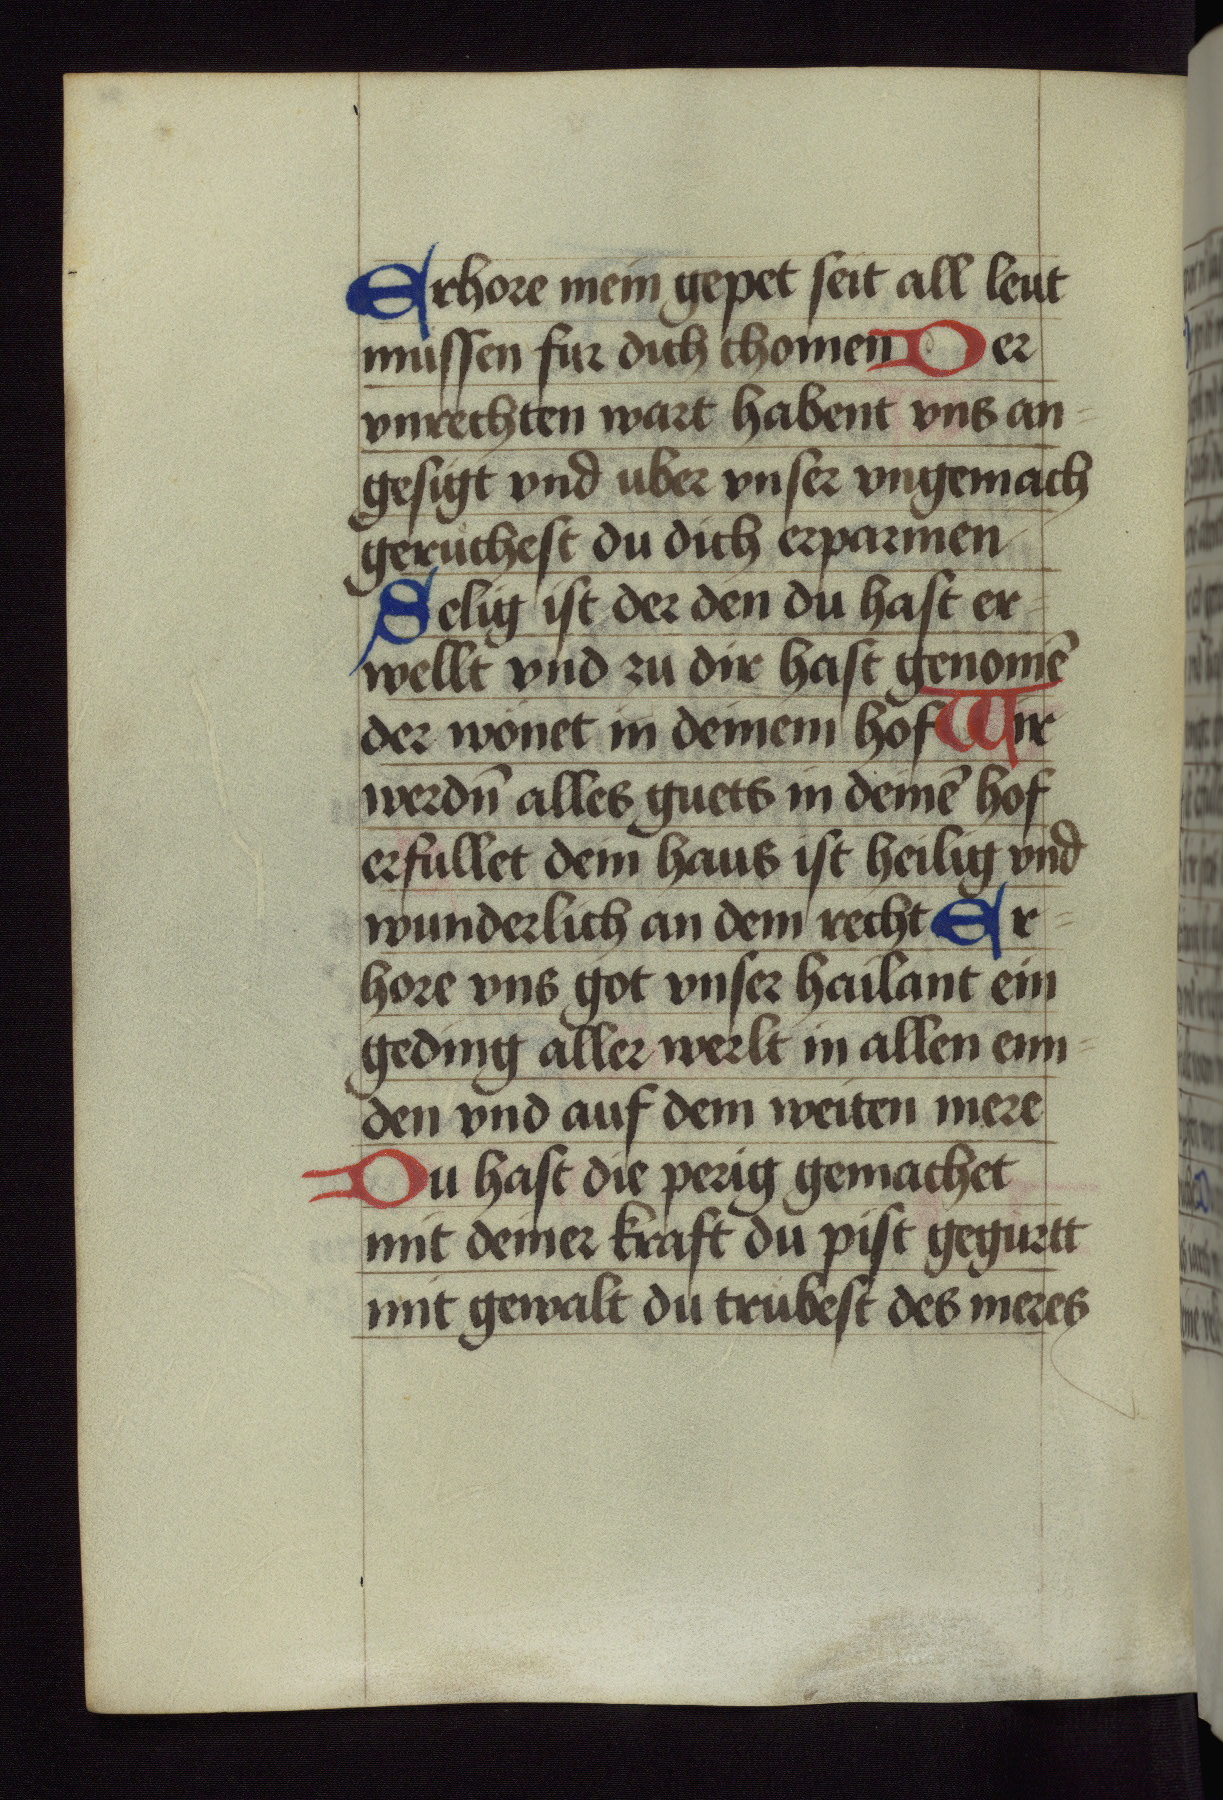 Erhore mein gepet seit all leut
mussen fur dich chomen Der
vnrechten wart habent vns an-
gesigt vnd uber vnser vngemach
geruchest du dich erparmen
Selig ist der den du hast er-
wellt vnd zu dir hast genomē
der wonet in deinem hof Wir
werdn̄ alles guets in deinē hof
erfullet dein haus ist heilig vnd
wunderlich an dem recht Er-
hore vns got vnser hailant ein
geding aller werlt in allen enn-
den vnd auf dem weiten mere
Du hast die perig gemachet
mit deiner kraft du pist gegurtt
mit gewalt du trubest des meres